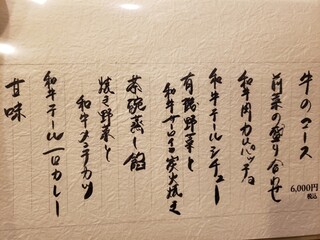 牛のコース
前菜の盛り合わせ
和牛肉カルパッチョ
和牛テールシチュー
有機野菜と
和牛サーロイン炭火焼き
茶碗蒸し 餡
焼き野菜と
和牛メンチカツ
和牛テール一口カレー
甘味
6,000円
税込